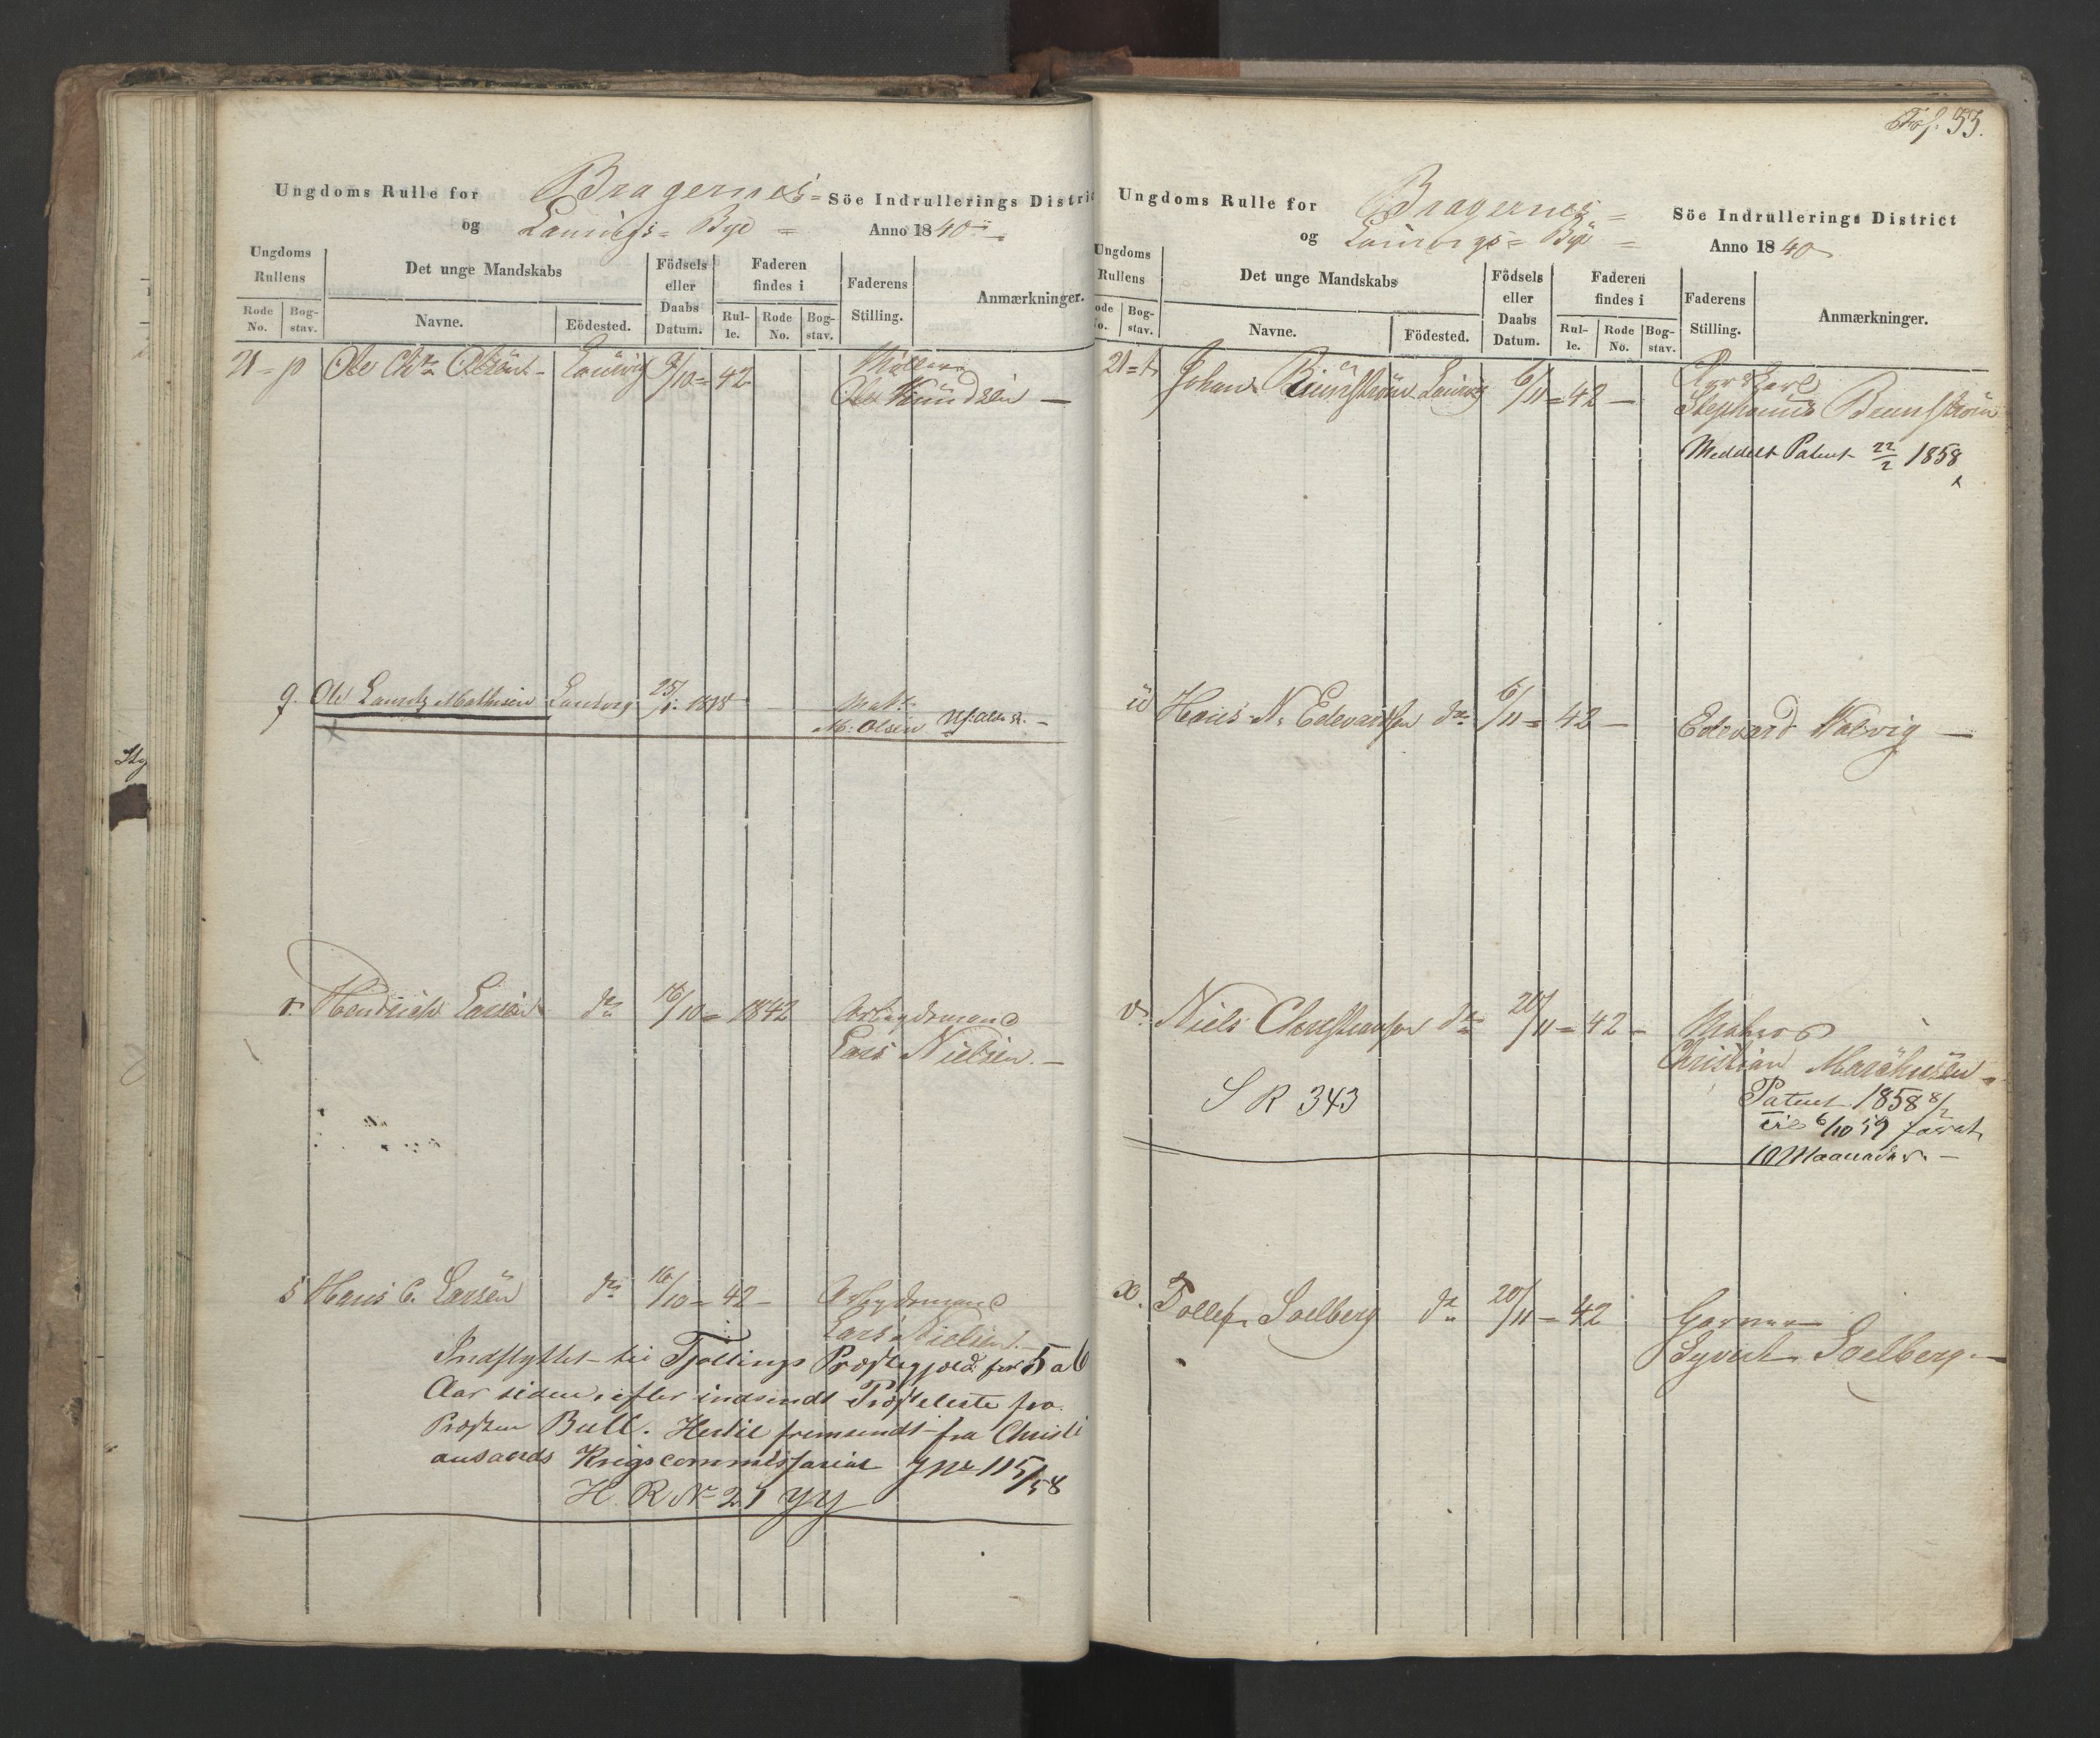 Ungdoms Rulle for Bragernes = Söe Indrullerings District
og Laurvigs = Bye = Anno 1840
Ungdoms Rullens
Rode No.
Bog-stav.
Det unge Mandskabs
Navne.
Födested.
Födsels eller Daabs Datum.
Faderen findes i
Rul-le.
Rode No.
Bog-stav.
Faderens Stilling.
Anmærkninger.
21 = p Ole Chr Olsen Laurvig 9/10 = 42
Ole Knudsen —
q. Ole Lauritz Mathisen Laurvig 25/1 1838 Matr
M. Olsen
r. Hendrich Larsen do 16/10 = 1842 Arbeydsmand
Lars Nielsen. —
s Hans C. Larsen do 16/10 = 42 — Arbeydsmand
Lars Nielsen. —
Indflyttet til Tjøllings Præstegjeld for 5 a 6
Aar siden, efter indsendt Præsteliste fra
Præsten Bull. Hertil fremsendt fra Christi
ansands Krigscommissariat JNr 115/58
H. R. No 21 yy
Fol. 53.
Ungdoms Rulle for Bragernes = Söe Indrullerings District
og Laurvigs = Bye = Anno 1840
Ungdoms Rullens
Rode No.
Bog-stav.
Det unge Mandskabs
Navne.
Födested.
Födsels eller Daabs Datum.
Faderen findes i
Rul-le.
Rode No.
Bog-stav.
Faderens Stilling.
Anmærkninger.
21 = t Johan Laurvig 6/11 = 42 —
Stephanus Brunström
Meddelt Patent 22/2 1858
u Hans N. Edevardsen do 6/11 = 42 — Edevard Walvig —
v. Niels Christiansen do 20/11 = 42 - Matros
Christian Marthisen
S R 343
Patent 1858 8/2
til 6/10 59 faret
10 Maaneder. —
x. Tollef Soelberg do 20/11 = 42 Garver
Syvert Soelberg. —